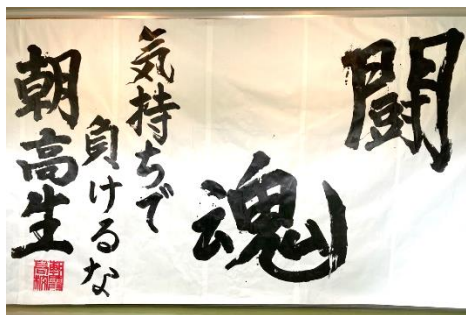 闘魂
気持ちで
負けるな
朝高生